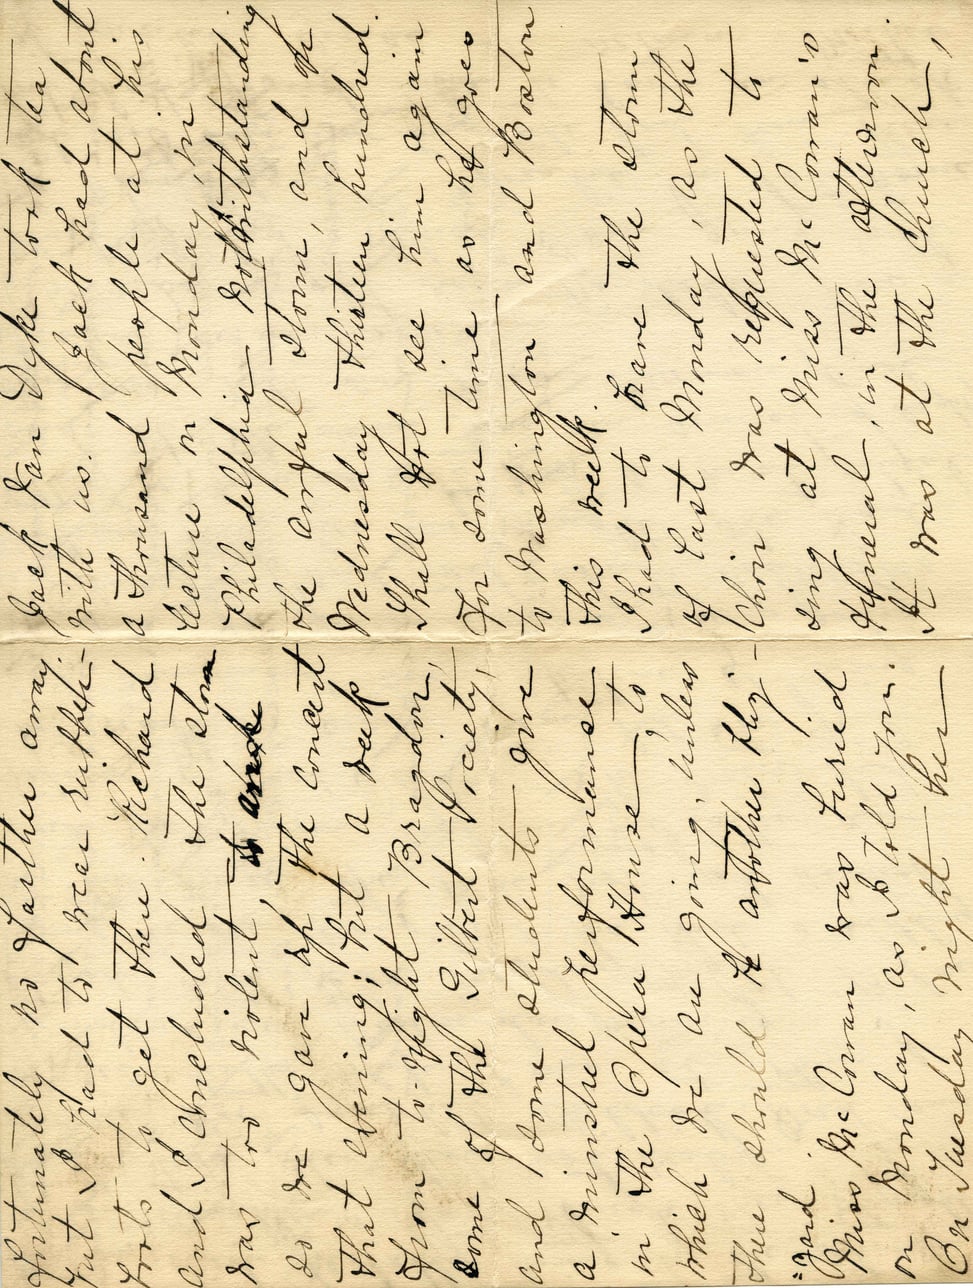 fortunately no farther away.
but I had to wear rubber-
boots to get there. Richard
and I concluded the storm
was too violent,
so we gave up the concert
that evening; but a week
from to-night Bragdon,
some of the Gilbert Society,
and some students give
a minstrel performance
in the Opera House— to
which we are going, unless
there should be another bliz-
=zard.
Miss McCowan was buried
on Monday, as I told you.
On Tuesday night
Jack Van Dyke took tea
with us. Jack had about
a thousand people at his
lecture on Monday, in
Philadelphia— notwithstanding
the awful storm, and on
Wednesday thirteen hundred.
Shall not see him again
for some time as he goes
to Washington and Boston
this week.
I had to brave the storm
of last Monday, as the
choir was requested to
sing at Miss McCowan's
funeral, in the afternoon.
It was at the church,